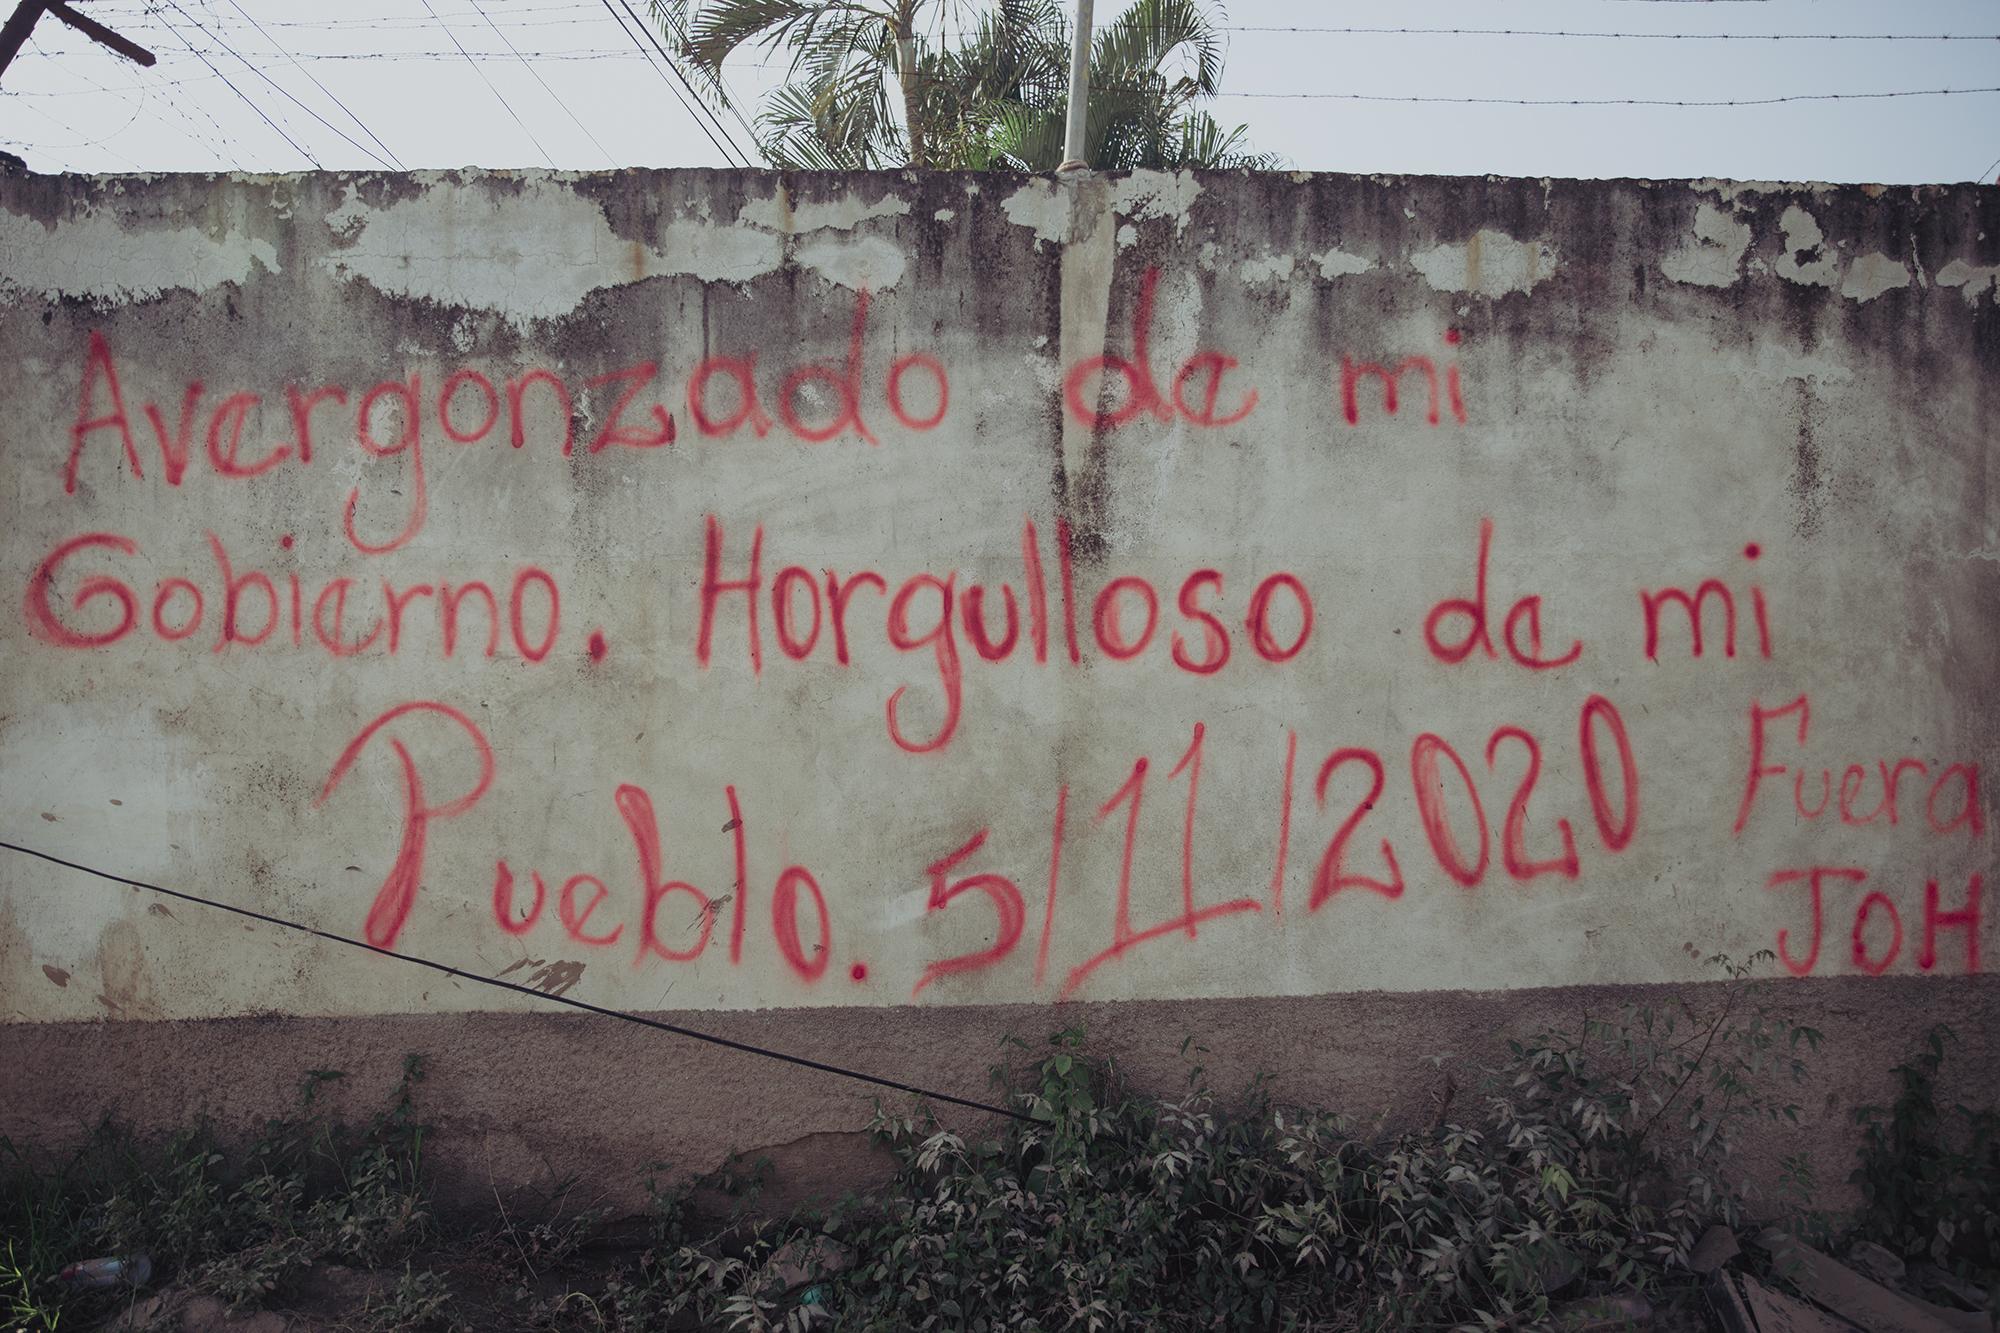 Avergonzado de mi
Gobierno. Horgulloso de mi
Pueblo. 5/11/2020
Fuera
JOH